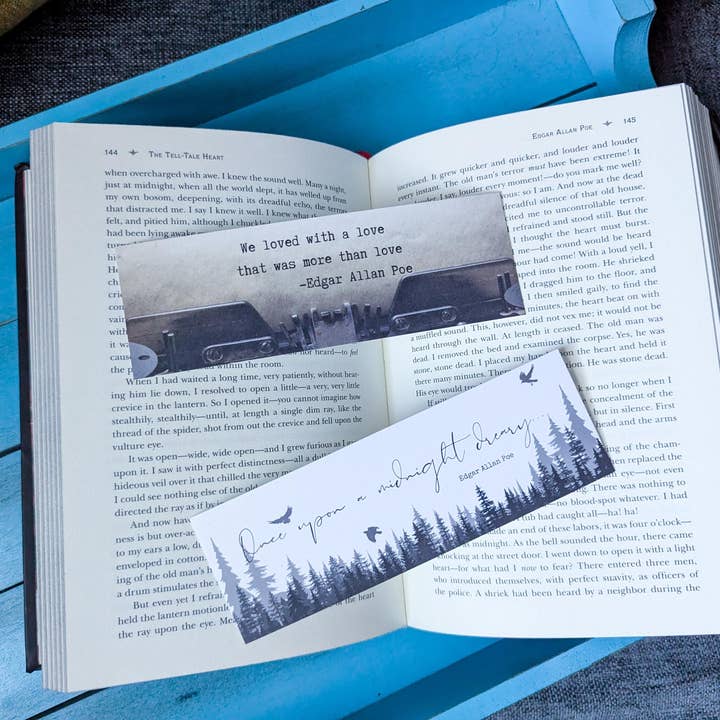 144 The Tell-Tale Heart
when overcharged with awe. I knew the sound well. Many a night,
just at midnight, when all the world slept, it has welled up from
my own bosom, deepening, with its dreadful echo, the terrors
that distracted me. I say I knew it well. I knew what the
felt, and pitied him, although I chuckled
had been lying awake
within the room.
When I had waited a long time, very patiently, without hear-
ing him lie down, I resolved to open a little—a very, very little
crevice in the lantern. So I opened it—you cannot imagine how
stealthily, stealthily—until, at length a single dim ray, like the
thread of the spider, shot from out the crevice and fell upon the
vulture eye.
It was open—wide, wide open—and I grew furious as I
upon it. I saw it with perfect distinctness—all a dull
hideous veil over it that chilled the very
I could see nothing else of the old
directed the ray as if by
And now have
ness is but over-ac
to my ears a low, d
enveloped in cotton
ing of the old man's h
a drum stimulates the
But even yet I refrai
held the lantern motionle
the ray upon the eye.
of the heart
Edgar Allan Poe 145
increased. It grew quicker and quicker, and louder and louder
every instant. The old man's terror must have been extreme! It
louder, I say, louder every moment!—do you mark me well?
so I am. And now at the dead
dreadful silence of that old house,
me to uncontrollable terror.
refrained and stood still. But the
I thought the heart must burst.
me—the sound would be heard
hour had come! With a loud yell, I
into the room. He shrieked
him to the floor, and
I then smiled gaily, to find
minutes, the heart beat on with
a muffled sound. This, however, did not vex me; it would not be
heard through the wall. At length it ceased. The old man was
dead. I removed the bed and examined the corpse. Yes, he was
stone dead. I placed my hand upon the heart and held it
there many minutes. There was no pulsation. He was stone dead.
His eye would trouble
If
so no longer when I
concealment of the
but in silence. First
and the arms
of the cham-
replaced the
eye—not even
was nothing to
no blood-spot whatever. I
tub had caught all—ha! ha!
an end of these labors, it was four o'clock—
midnight. As the bell sounded the hour, there came
a knocking at the street door. I went down to open it with a light
heart—for what had I now to fear? There entered three men,
who introduced themselves, with perfect suavity, as officers of
the police. A shriek had been heard by a neighbor during the
We loved with a love
that was more than love
-Edgar Allan Poe
Once upon a midnight dreary...
Edgar Allan Poe